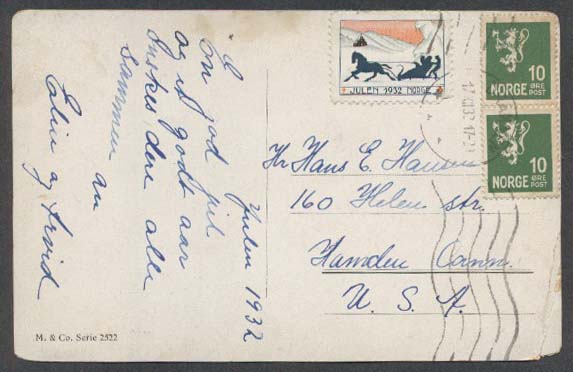 Julen 1932
En god jul
og et godt aar
ønskes dere alle
sammen av
Elin og Arvid
M. & Co. Serie 2522
JULEN 1932 NORGE
10
NORGE ØRE POST
10
NORGE ØRE POST
Hr Hans E. Hansen
160 Helen str.
Hamden Conn.
U. S. A.